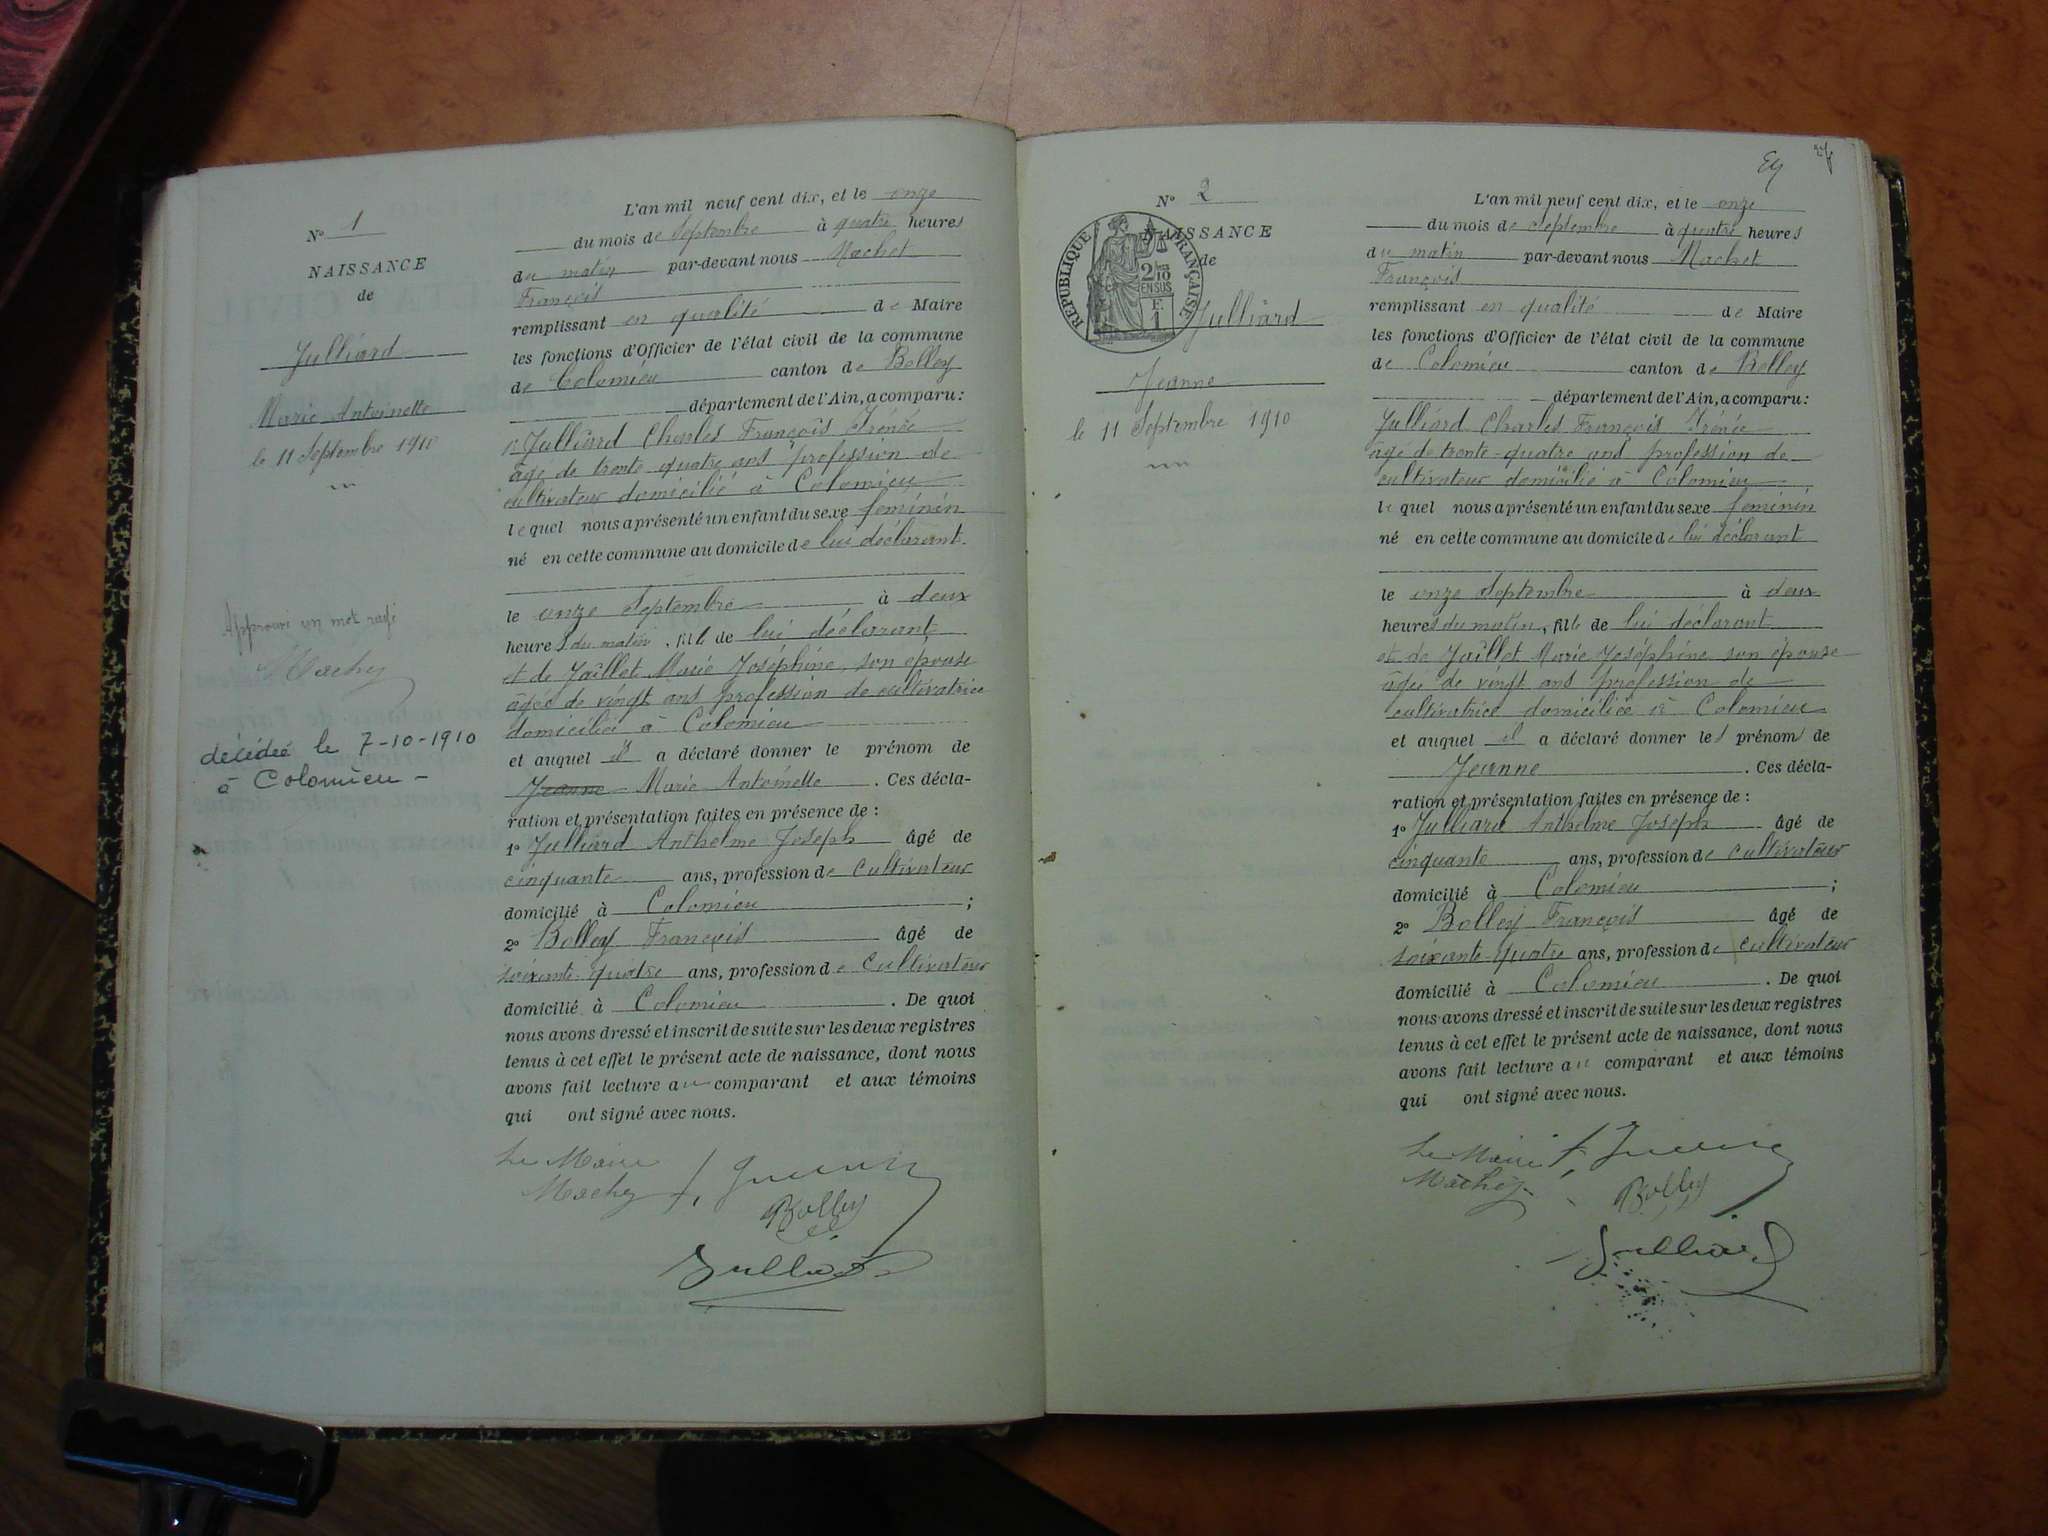 N° 1
NAISSANCE
de
Julliard
Marie Antoinette
le 11 Septembre 1910
Approuvé un mot rayé
Machy
décédée le 7-10-1910
à Colomieu -
L'an mil neuf cent dix, et le onze
du mois de Septembre à quatre heures
du matin par-devant nous Machet
François
remplissant en qualité de Maire
les fonctions d'Officier de l'état civil de la commune
de Colomieu canton de Belley
département de l'Ain, a comparu:
Julliard Charles François Irénée
âgé de trente-quatre ans profession de
cultivateur domicilié à Colomieu
lequel nous a présenté un enfant du sexe féminin
né en cette commune au domicile de lui déclarant
le onze Septembre à deux
heures du matin, fille de lui déclarant
et de Jaillet Marie Joséphine son épouse
âgée de vingt ans profession de cultivatrice
domiciliée à Colomieu
et auquel il a déclaré donner le prénom de
Jeanne Marie Antoinette. Ces décla-
ration et présentation faites en présence de :
1° Julliard Anthelme Joseph âgé de
cinquante ans, profession de cultivateur
domicilié à Colomieu ;
2° Bolley François âgé de
soixante-quatre ans, profession de cultivateur
domicilié à Colomieu. De quoi
nous avons dressé et inscrit de suite sur les deux registres
tenus à cet effet le présent acte de naissance, dont nous
avons fait lecture au comparant et aux témoins
qui ont signé avec nous.
Le Maire
Machy
Bolley
Julliard
N° 2
NAISSANCE
de
RÉPUBLIQUE FRANÇAISE
2/10 EN SUS
F. 1
Julliard
Jeanne
le 11 Septembre 1910
L'an mil neuf cent dix, et le onze
du mois de Septembre à quatre heures
du matin par-devant nous Machet
François
remplissant en qualité de Maire
les fonctions d'Officier de l'état civil de la commune
de Colomieu canton de Belley
département de l'Ain, a comparu:
Julliard Charles François Irénée
âgé de trente-quatre ans profession de
cultivateur domicilié à Colomieu
lequel nous a présenté un enfant du sexe féminin
né en cette commune au domicile de lui déclarant
le onze Septembre à deux
heures du matin, fille de lui déclarant
et de Jaillet Marie Joséphine son épouse
âgée de vingt ans profession de
cultivatrice domiciliée à Colomieu
et auquel il a déclaré donner les prénoms de
Jeanne. Ces décla-
ration et présentation faites en présence de :
1° Julliard Anthelme Joseph âgé de
cinquante ans, profession de cultivateur
domicilié à Colomieu ;
2° Bolley François âgé de
soixante-quatre ans, profession de cultivateur
domicilié à Colomieu. De quoi
nous avons dressé et inscrit de suite sur les deux registres
tenus à cet effet le présent acte de naissance, dont nous
avons fait lecture au comparant et aux témoins
qui ont signé avec nous.
Le Maire
Machy
Bolley
Julliard